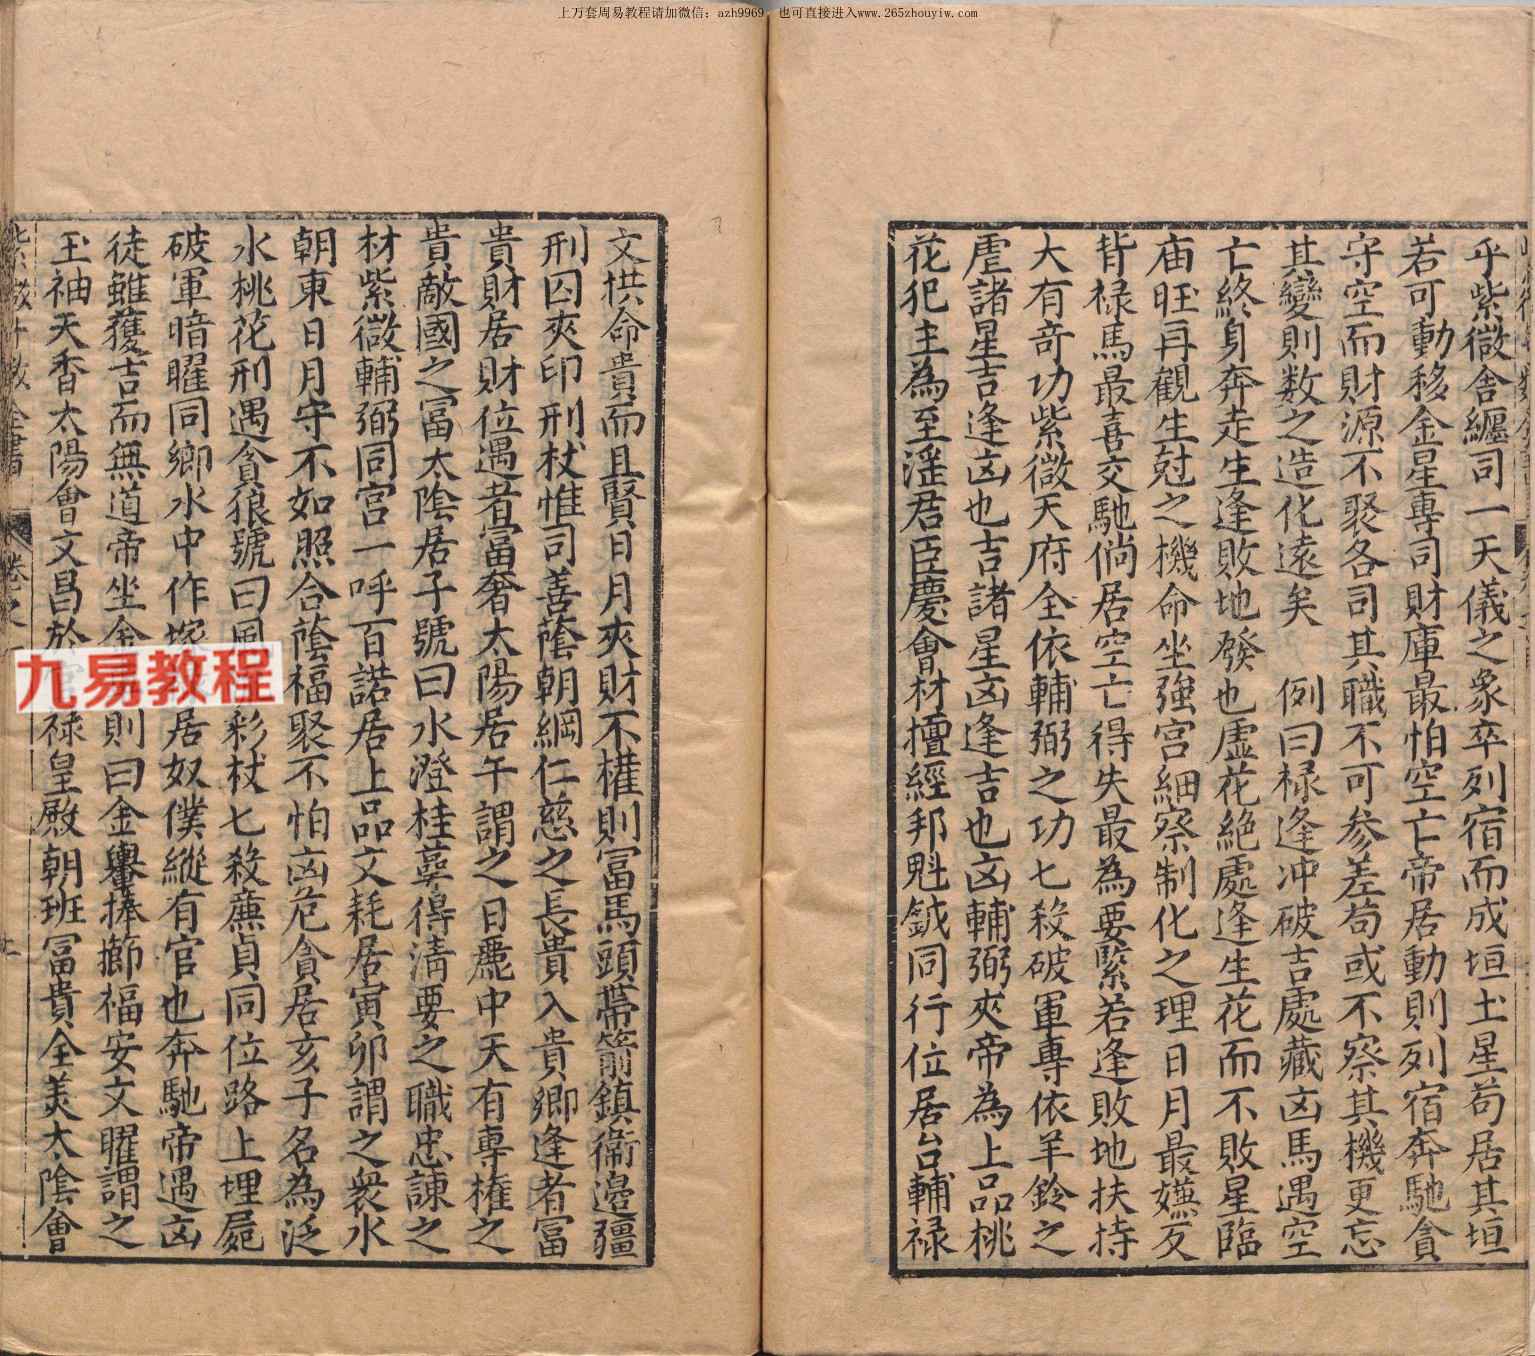 上万套周易教程请加微信：azh9969，也可直接进入www.265zhouyiw.com
乎紫微舍纏司一天儀之象卒列宿而成垣土星苟居其垣
若可動移金星專司財庫最怕空亡帝居動則列宿奔馳貪
守空而財源不聚各司其職不可參差苟或不察其機更忘
其變則数之造化遠矣　例曰祿逢冲破吉處藏凶馬遇空
亡終身奔走生逢敗地發也虛花絕處逢生花而不敗星臨
庙旺再觀生尅之機命坐強宮細察制化之理日月最嫌反
背禄馬最喜交馳倘居空亡得失最為要緊若逢敗地扶持
大有奇功紫微天府全依輔弼之功七殺破軍專依羊鈴之
虐諸星吉逢凶也吉諸星凶逢吉也凶輔弼夾帝為上品桃
花犯主為至淫君臣慶會材擅經邦魁鉞同行位居台輔禄
文拱命貴而且賢日月夾財不權則冨馬頭帶箭鎮衞邊疆
刑囚夾印刑杖惟司善蔭朝綱仁慈之長貴入貴卿逢者冨
貴財居財位遇者富奢太陽居午謂之日麗中天有專權之
貴敵國之冨太陰居子號曰水澄桂萼得清要之職忠諫之
材紫微輔弼同宫一呼百諾居上品文耗居寅卯謂之衆水
朝東日月守不如照合蔭福聚不怕凶危貪居亥子名為泛
水桃花刑遇貪狼號曰風彩杖七殺廉貞同位路上埋屍
破軍暗曜同鄉水中作塚居奴僕縱有官也奔馳帝遇凶
徒雖獲吉而無道帝坐金則曰金轝捧櫛福安文曜謂之
玉袖天香太陽會文昌於禄皇殿朝班冨貴全美太陰會
紫微斗数全書 卷之
九易教程